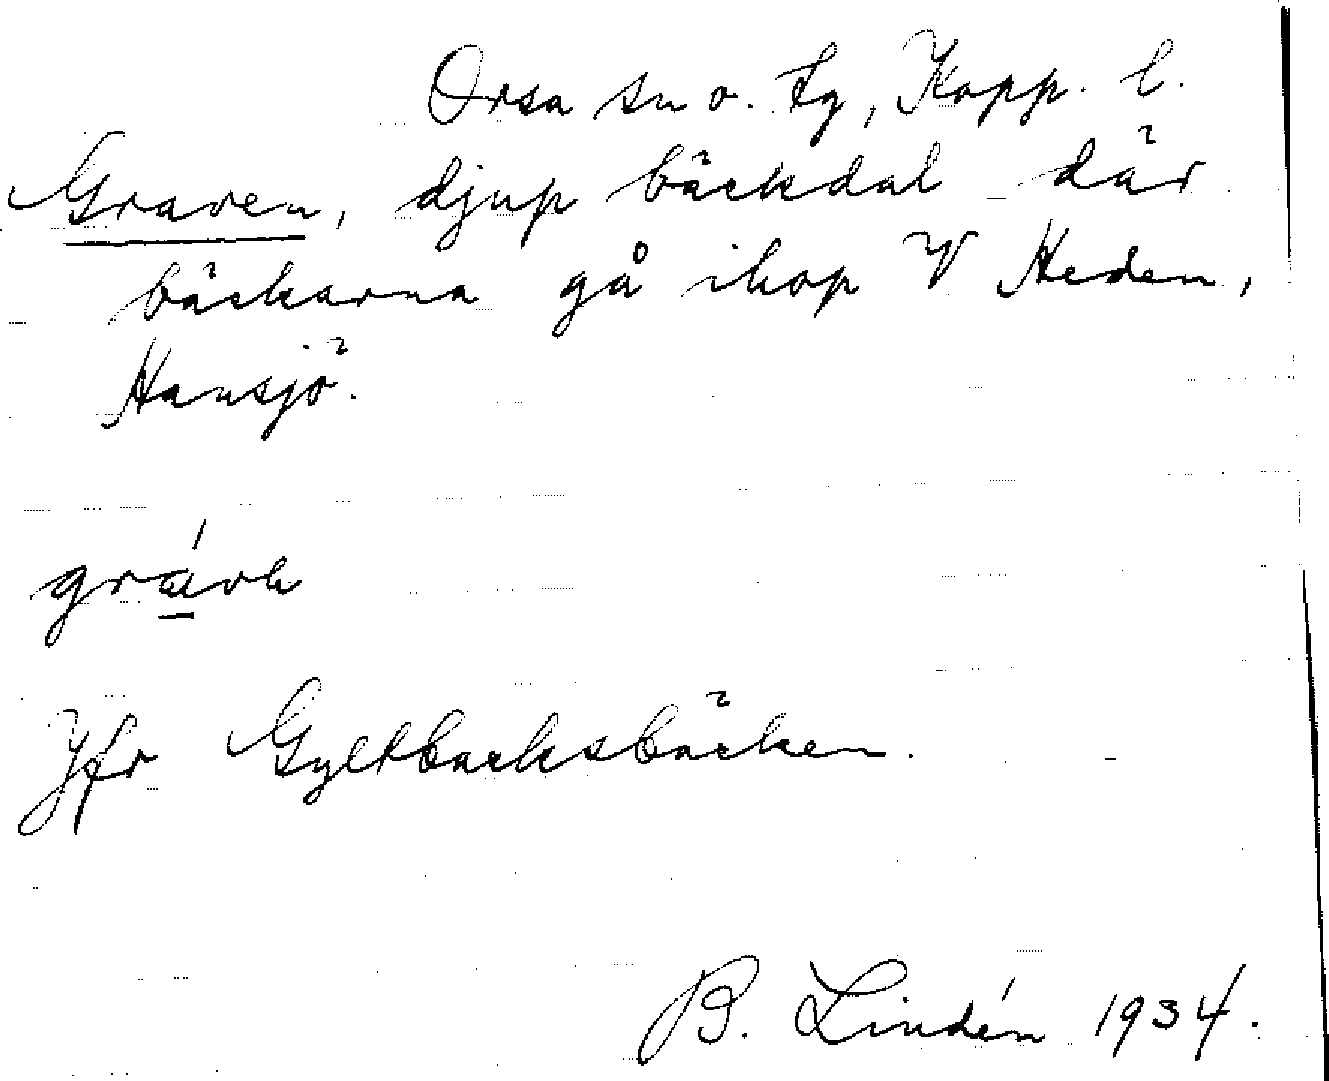 Orsa sn o. tg, Kopp. l.
Graven, djup bäckdal där
bäckarna gå ihop V Heden,
Hansjö.
grávn
Jfr Gyltbacksbäcken.
B. Lindén 1934.